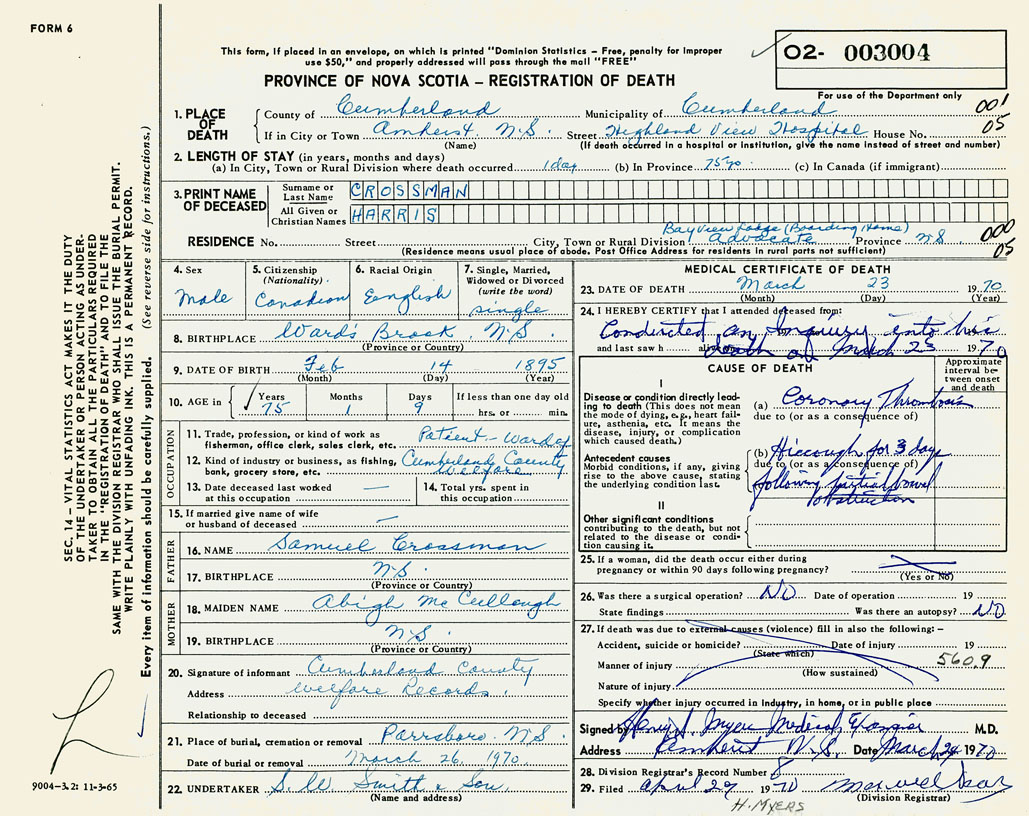 FORM 6
This form, if placed in an envelope, on which is printed "Dominion Statistics – Free, penalty for improper
use $50," and properly addressed will pass through the mail "FREE"
O2- 003004
PROVINCE OF NOVA SCOTIA – REGISTRATION OF DEATH
For use of the Department only
001
05
1. PLACE OF DEATH
County of Cumberland Municipality of Cumberland
If in City or Town Amherst. N.S. Street Highland View Hospital House No.
(Name) (If death occurred in a hospital or institution, give the name instead of street and number)
2. LENGTH OF STAY (in years, months and days)
(a) In City, Town or Rural Division where death occurred 1 day (b) In Province 75 yo. (c) In Canada (if immigrant)
3. PRINT NAME OF DECEASED
Surname or Last Name CROSSMAN
All Given or Christian Names HARRIS
Bayview Lodge (Boarding Home)
RESIDENCE No. Street City, Town or Rural Division Advocate Province N.S.
000
05
(Residence means usual place of abode. Post Office Address for residents in rural parts not sufficient)
4. Sex
Male
5. Citizenship (Nationality)
Canadian
6. Racial Origin
English
7. Single, Married, Widowed or Divorced (write the word)
single
8. BIRTHPLACE Ward's Brook, N.S.
(Province or Country)
9. DATE OF BIRTH Feb 14 1895
(Month) (Day) (Year)
10. AGE in Years Months Days If less than one day old
75 1 9 hrs. or min.
OCCUPATION
11. Trade, profession, or kind of work as
fisherman, office clerk, sales clerk, etc. Patient – Ward of
12. Kind of industry or business, as fishing,
bank, grocery store, etc. Cumberland County Welfare
13. Date deceased last worked
at this occupation —
14. Total yrs. spent in
this occupation
15. If married give name of wife
or husband of deceased —
FATHER
16. NAME Samuel Crossman
17. BIRTHPLACE N.S.
(Province or Country)
MOTHER
18. MAIDEN NAME Abigh McCullough
19. BIRTHPLACE N.S.
(Province or Country)
20. Signature of informant Cumberland County
Address Welfare Records.
Relationship to deceased
21. Place of burial, cremation or removal Parrsboro. N.S.
Date of burial or removal March 26. 1970.
22. UNDERTAKER S.W. Smith & Son.
(Name and address)
MEDICAL CERTIFICATE OF DEATH
23. DATE OF DEATH March 23 1970
(Month) (Day) (Year)
24. I HEREBY CERTIFY that I attended deceased from:
Conducted an Inquiry into his
and last saw h death of March 23 1970
CAUSE OF DEATH
Approximate interval between onset and death
I
Disease or condition directly lead-
ing to death (This does not
mean the mode of dying, e.g., heart fail-
ure, asthenia, etc. It means the
disease, injury, or complication
which caused death.)
(a) Coronary Thrombosis
due to (or as a consequence of)
Antecedent causes
Morbid conditions, if any, giving
rise to the above cause, stating
the underlying condition last.
(b) Hiccough for 3 days
due to (or as a consequence of)
following partial bowel
obstruction
II
Other significant conditions
contributing to the death, but not
related to the disease or condi-
tion causing it.
25. If a woman, did the death occur either during
pregnancy or within 90 days following pregnancy?
(Yes or No)
26. Was there a surgical operation? NO Date of operation 19
State findings Was there an autopsy? NO
27. If death was due to external causes (violence) fill in also the following: –
Accident, suicide or homicide? Date of injury 19
(State which)
Manner of injury 560.9
(How sustained)
Nature of injury
Specify whether injury occurred in Industry, in home, or in public place
Signed by Medical Examiner M.D.
Address Amherst N.S. Date March 24 1970
28. Division Registrar's Record Number 8
29. Filed April 29 1970
(Division Registrar)
H. MYERS
SEC. 14 – VITAL STATISTICS ACT MAKES IT THE DUTY
OF THE UNDERTAKER OR PERSON ACTING AS UNDER-
TAKER TO OBTAIN ALL THE PARTICULARS REQUIRED
IN THE "REGISTRATION OF DEATH" AND TO FILE THE
SAME WITH THE DIVISION REGISTRAR WHO SHALL ISSUE THE BURIAL PERMIT.
WRITE PLAINLY WITH UNFADING INK. THIS IS A PERMANENT RECORD.
Every item of information should be carefully supplied. (See reverse side for instructions.)
9004-3.2: 11-3-65